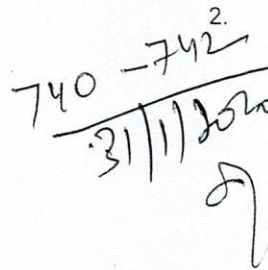 740 - 742
2.
31/1/2020